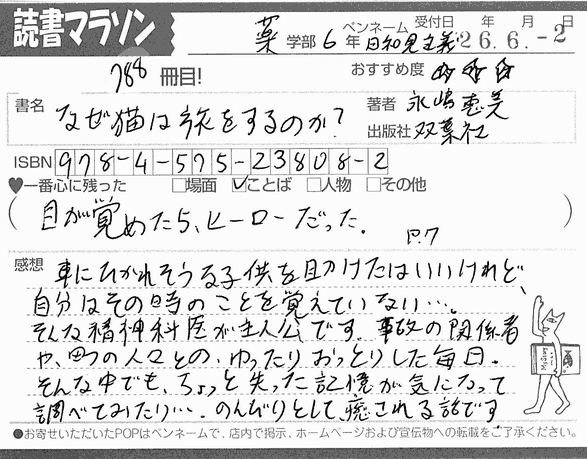 読書マラソン
薬 学部 6 年 ペンネーム 日和見主義 受付日 26.6.-2 年 月 日
788 冊目! おすすめ度 ☆☆☆
書名 なぜ猫は旅をするのか? 著者 永嶋恵美
出版社 双葉社
ISBN 978-4-575-23808-2
♥一番心に残った □場面 ☑ことば □人物 □その他
(目が覚めたら、ヒーローだった。)
P.7
感想 車にひかれそうな子供を助けたはいいけれど、
自分はその時のことを覚えていない…。
そんな精神科医が主人公です。事故の関係者
や、町の人々との、ゆったりおっとりした毎日。
そんな中でも、ちょっと失った記憶が気になって
調べてみたり…。のんびりとして、癒される話です
●お寄せいただいたPOPはペンネームで、店内で掲示、ホームページおよび宣伝物への転載をご了承ください。